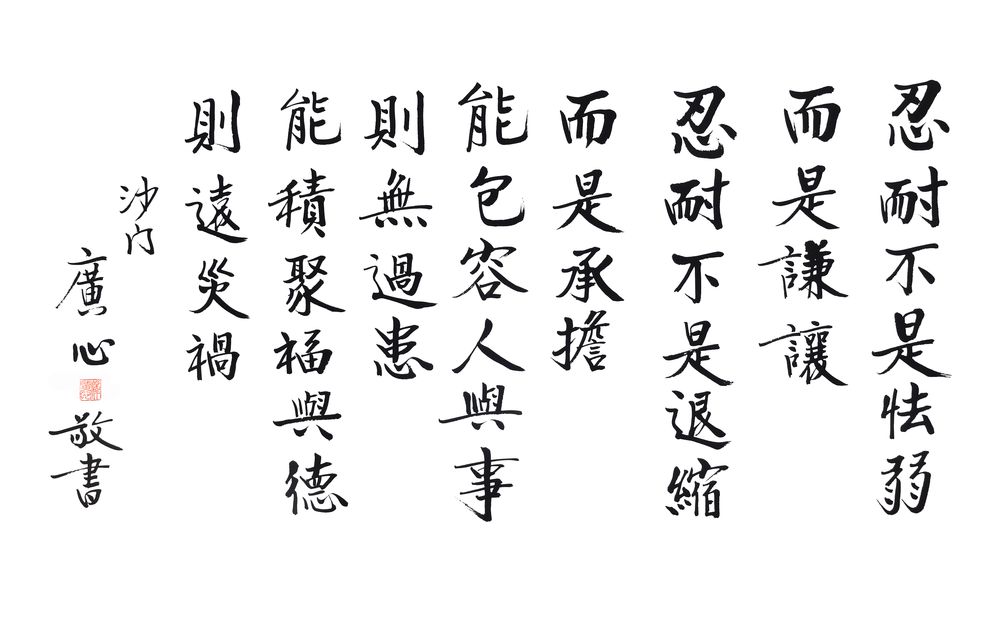 忍耐不是怯弱
而是謙讓
忍耐不是退縮
而是承擔
能包容人與事
則無過患
能積聚福與德
則遠災禍
沙门
廣心
敬書